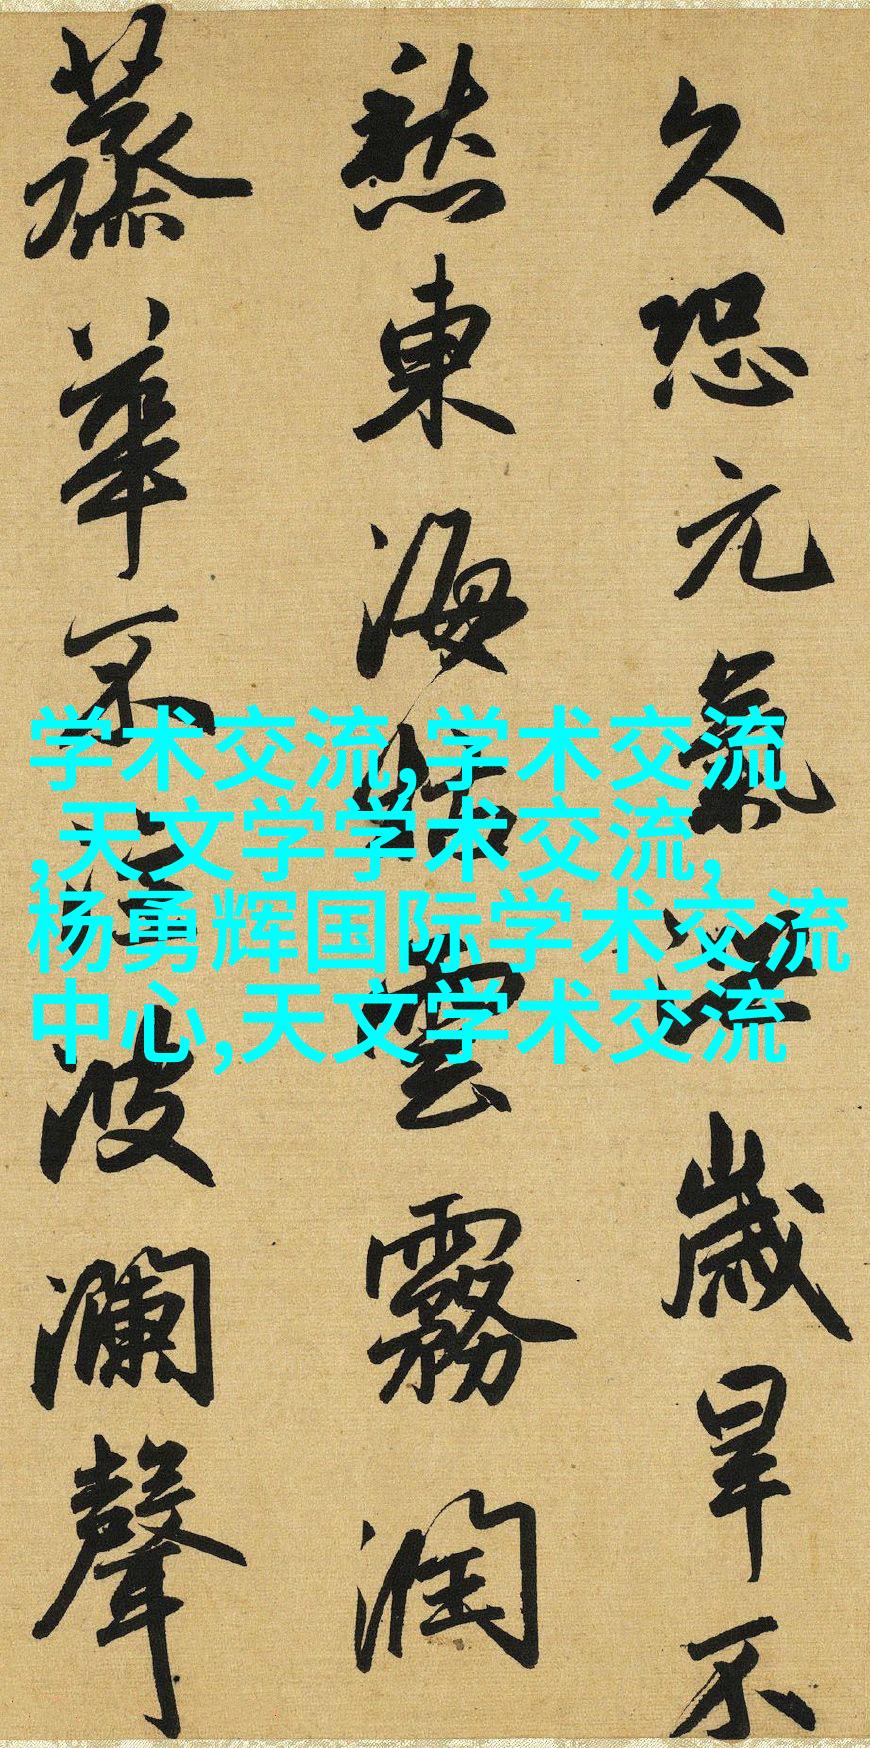 久恐元氣泄歲旱不
愁東海枯雲霧潤
蒸華不注波瀾聲
学术交流,学术交流
,天文学学术交流,
杨勇辉国际学术交流
中心,天文学术交流